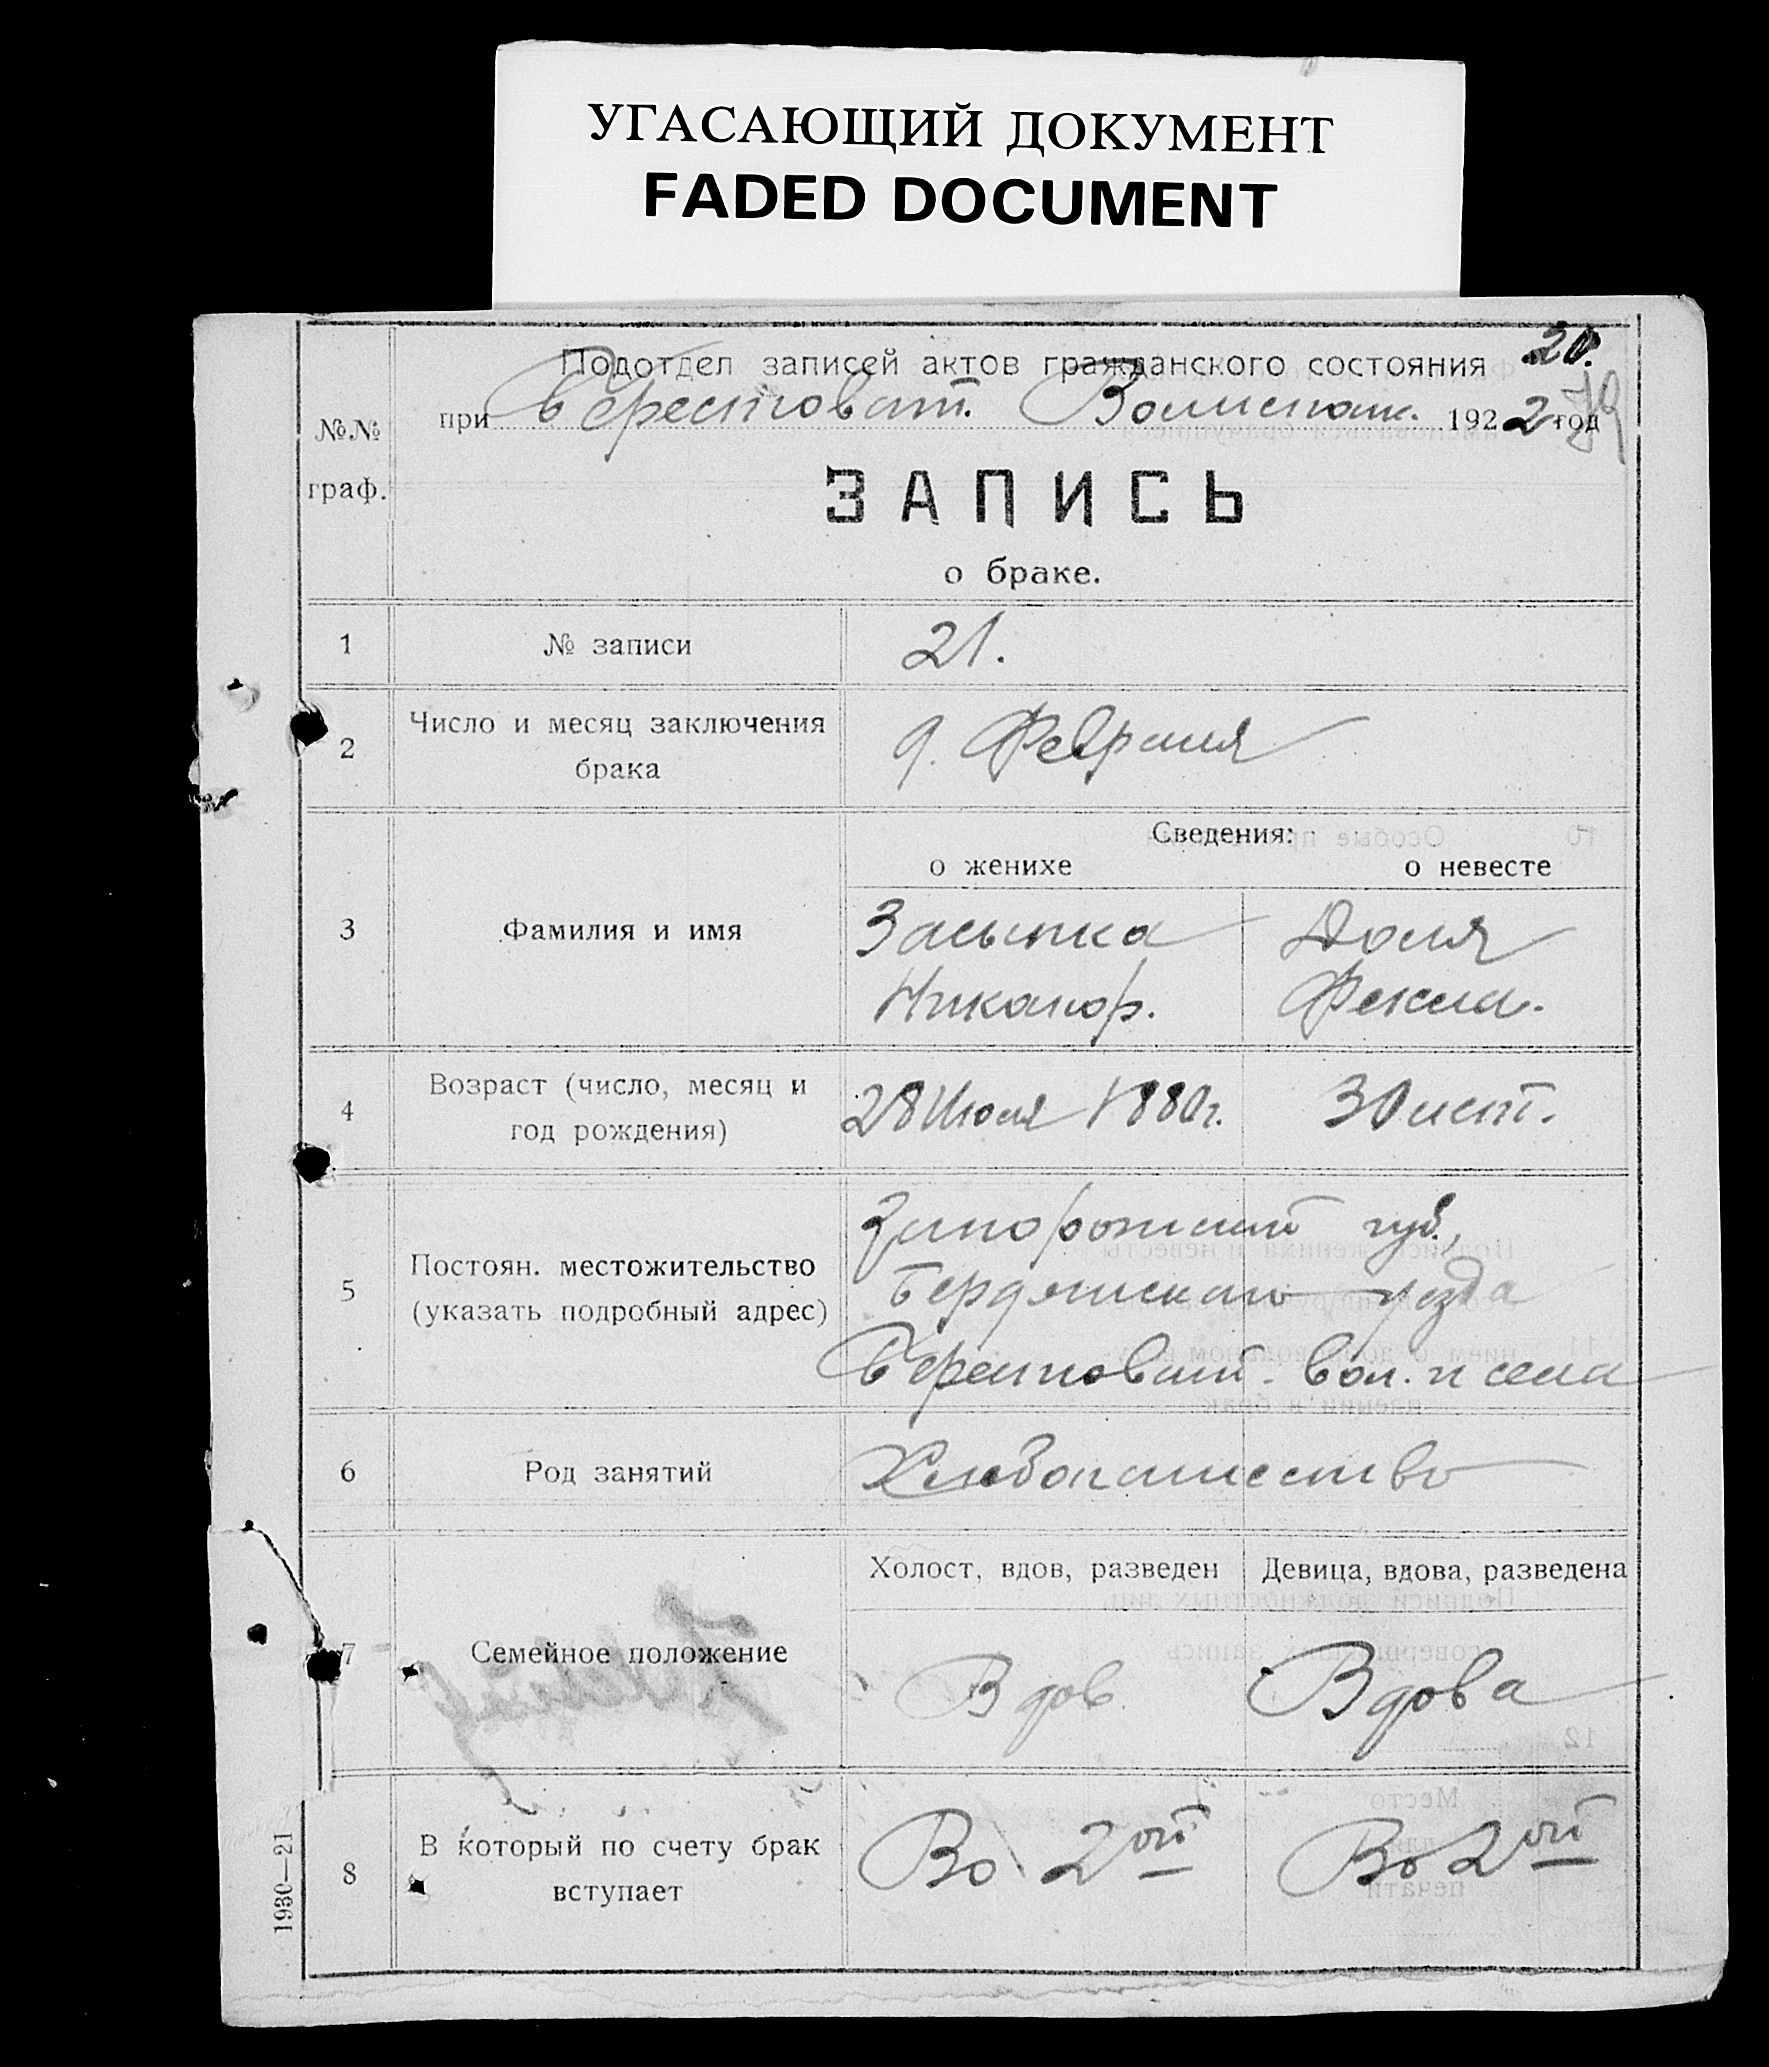 УГАСАЮЩИЙ ДОКУМЕНТ
FADED DOCUMENT
20.
Подотдел записей актов гражданского состояния
при Берестоват. Волисполк. 1922 год
79
№№ граф.
ЗАПИСЬ
о браке.
1 № записи 21.
2 Число и месяц заключения брака 9. Февраля
Сведения:
о женихе о невесте
3 Фамилия и имя
Засыпка Доля
Никанор. Фекла.
4 Возраст (число, месяц и год рождения) 28 Июля 1880 г. 30 лет.
5 Постоян. местожительство (указать подробный адрес)
Запорожской губ.,
Бердянского уезда
Берестоват. вол. и села
6 Род занятий Хлебопашество
Холост, вдов, разведен Девица, вдова, разведена
7 Семейное положение Вдов Вдова
8 В который по счету брак вступает Во 2ой Во 2ой
1930—21